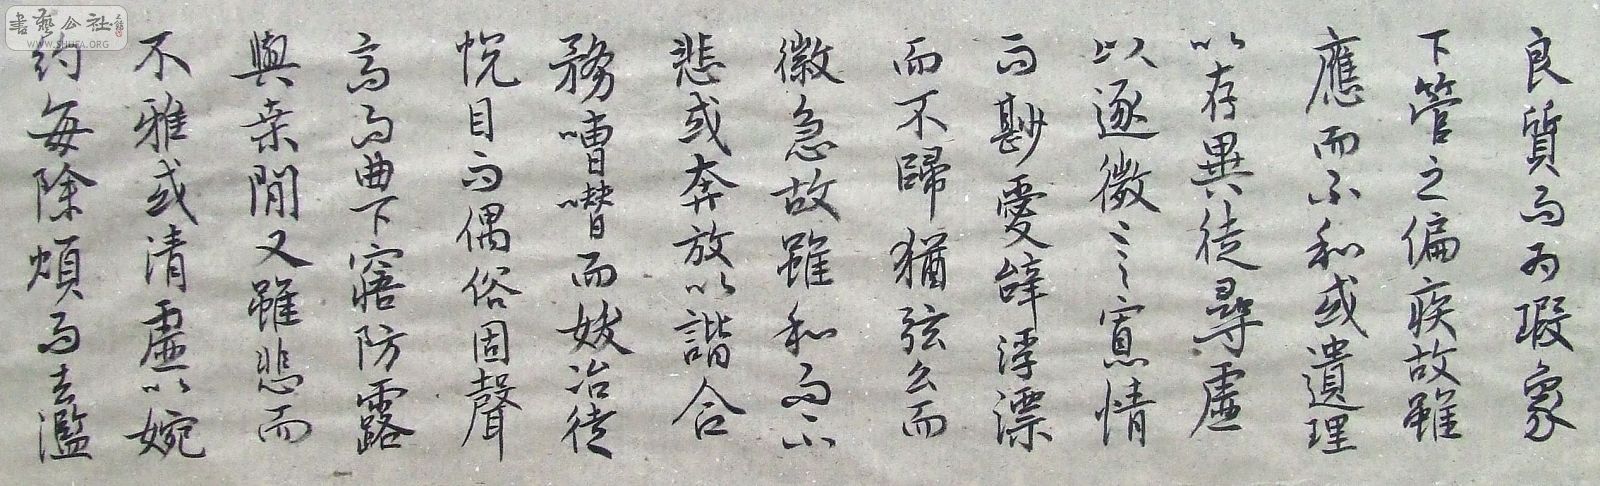 良質而為瑕象
下管之偏疾故雖
應而不和或遺理
以存異徒尋虛
以逐微言寡情
而尠愛辭浮漂
而不歸猶弦么而
徽急故雖和而不
悲或奔放以諧合
務嘈噆而妖冶徒
悅目而偶俗固聲
高而曲下寤防露
與桑閒又雖悲而
不雅或清虛以婉
約每除煩而去濫
書藝公社
WWW.SHUFA.ORG